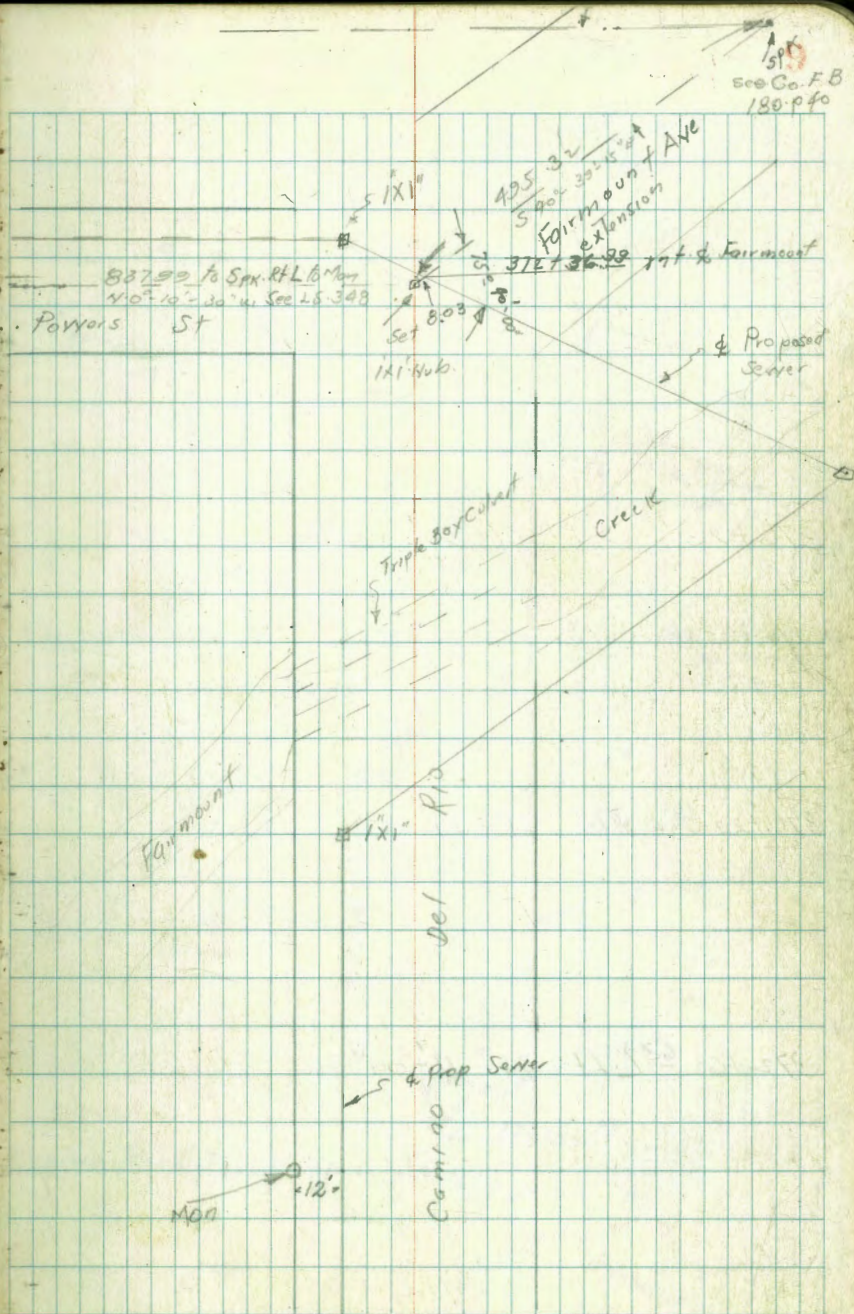 9
SPK
see Co. F.B
180.p 40
1"X1"
495.32
Fairmount Ave
extension
372 + 36.99 int ℄ Fairmount
837.99 to Spk. Rt L to Mon
N.0°-10'-30" W. See LS.348
Powers St
8.03
Set
1X1 Hub.
℄ Proposed
Sewer
Triple Box Culvert
Creek
Fairmount
1"X1"
Camino Del Rio
℄ Prop Sewer
12'
Mon